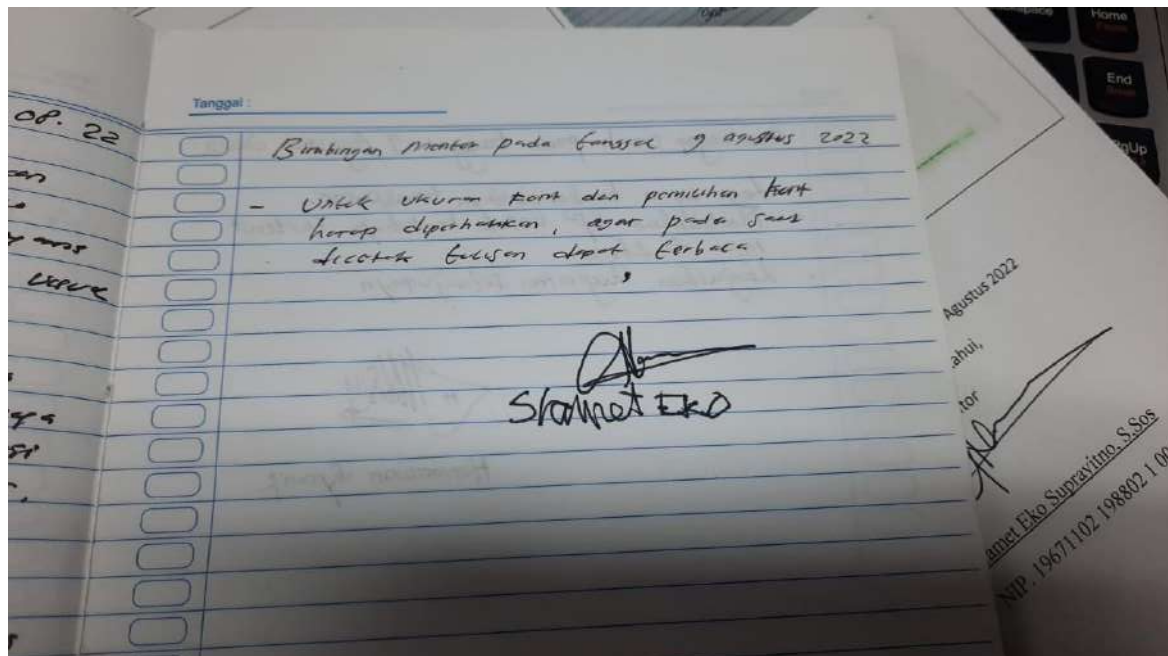 08. 22
Tanggal :
Bimbingan Mentor pada tanggal 9 agustus 2022
- Untuk ukuran font dan pemilihan font
harap diperhatikan, agar pada saat
dicetak tulisan dapat terbaca.
Slamet EKO
Agustus 2022
ahui,
tor
amet Eko Suprayitno, S.Sos
NIP. 19671102 198802 1 00
Home
End
gUp